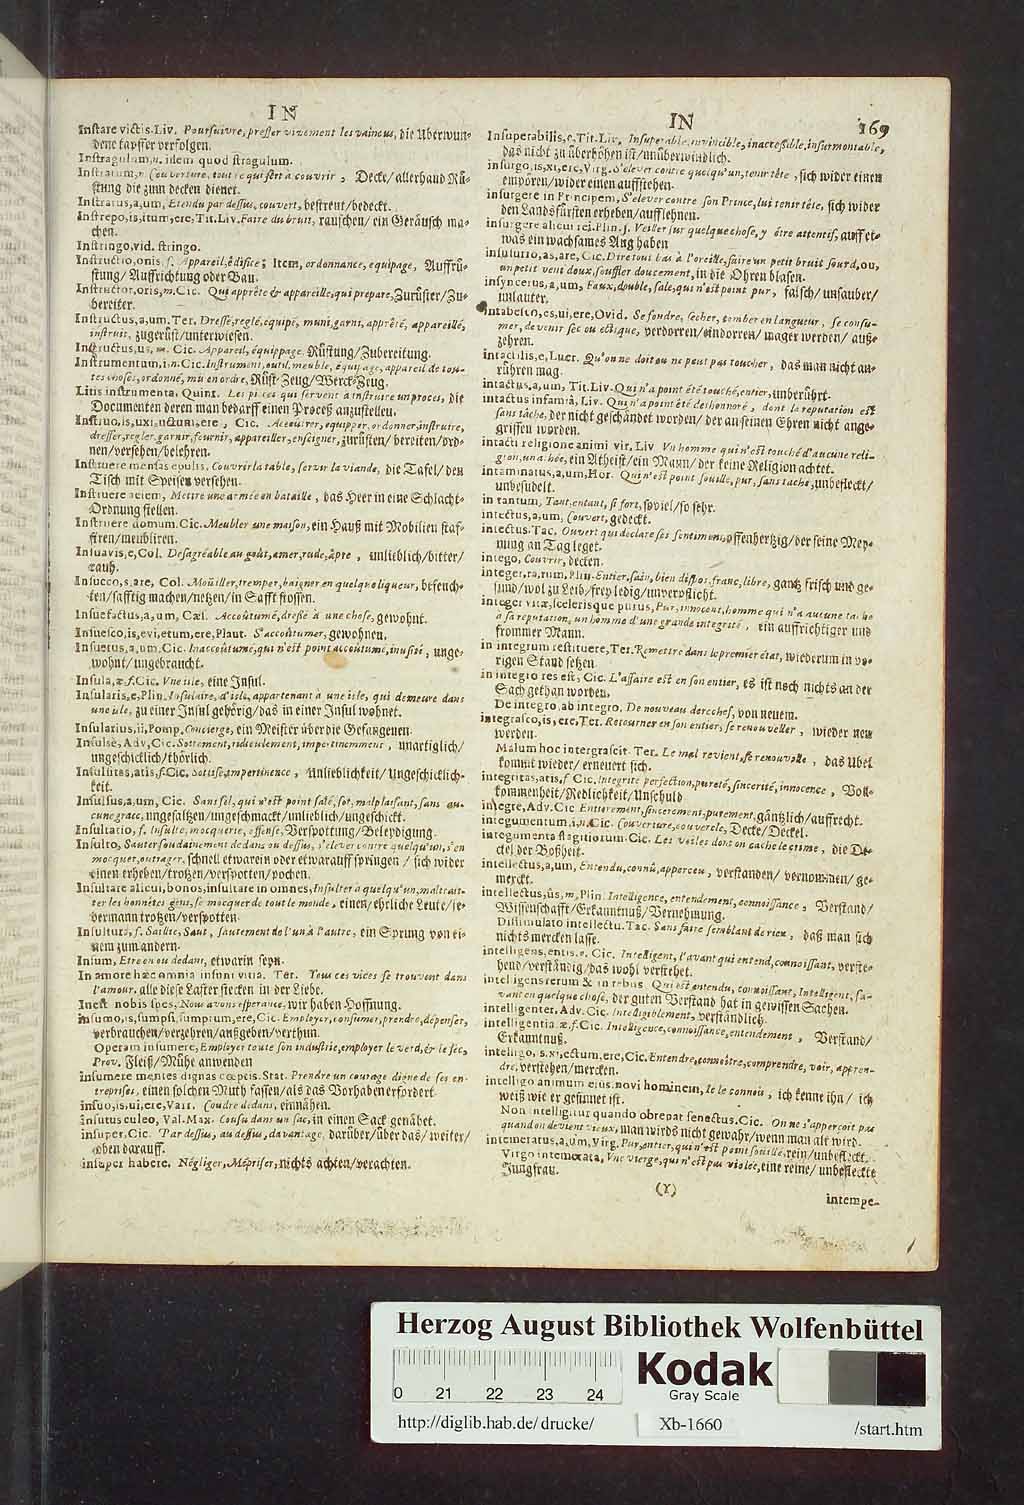 IN
Instare victis. Liv. Poursuivre, presser vivement les vaincus, die Uberwun-
dene tapffer verfolgen.
Instragulum, n. idem quod stragulum.
Instratum, n. Couverture, tout ce qui sert à couvrir, Decke/ allerhand Rü-
stung die zum decken dienet.
Instratus, a, um, Etendu par dessus, couvert, bestreut/ bedeckt.
Instrepo, is, itum, ere, Tit. Liv. Faire du bruit, rauschen/ ein Geräusch ma-
chen.
Instringo, vid. stringo.
Instructio, onis, f. Appareil, édifice; Item, ordonnance, equipage, Auffrü-
stung/ Auffrichtung oder Bau.
Instructor, oris, m. Cic. Qui apprête & appareille, qui prepare, Zurüster/ Zu-
bereiter.
Instructus, a, um. Ter. Dressé, reglé, équipé, muni, garni, apprêté, appareillé,
instruit, zugerüst/ unterwiesen.
Instructus, us, m. Cic. Appareil, équippage, Rüstung/ Zubereitung.
Instrumentum, i, n. Cic. Instrument, outil, meuble, équipage, appareil de tou-
tes choses, ordonné, mis en ordre, Rüst-Zeug/ Werck-Zeug.
Litis instrumenta. Quint. Les pieces qui servent à instruire un procés, die
Documenten deren man bedarff einen Proceß anzustellen.
Instruo, is, uxi, uctum, ere, Cic. Accoûtrer, equipper, ordonner, instruire,
dresser, regler, garnir, fournir, appareiller, enseigner, zurüsten/ bereiten/ ord-
nen/ versehen/ belehren.
Instruere mensas epulis, Couvrir la table, servir la viande, die Tafel/ den
Tisch mit Speisen versehen.
Instruere aciem, Mettre une armée en bataille, das Heer in eine Schlacht-
Ordnung stellen.
Instruere domum. Cic. Meubler une maison, ein Hauß mit Mobilien staf-
firen/ meubliren.
Insuavis, e, Col. Desagréable au goût, amer, rude, âpre, unlieblich/ bitter/
rauh.
Insucco, s, are, Col. Moüiller, tremper, baigner en quelque liqueur, befeuch-
ten/ safftig machen/ netzen/ in Safft stossen.
Insuefactus, a, um, Cæl. Accoûtumé, dressé à une chose, gewohnt.
Insuesco, is, evi, etum, ere, Plaut. S'accoûtumer, gewohnen.
Insuetus, a, um, Cic. Inaccoûtumé, qui n'est point accoutumé, inusité, unge-
wohnt/ ungebraucht.
Insula, æ, f. Cic. Vne isle, eine Insul.
Insularis, e, Plin. Insulaire, d'isle, appartenant à une isle, qui demeure dans
une isle, zu einer Insul gehörig/ das in einer Insul wohnet.
Insularius, ii, Pomp. Concierge, ein Meister über die Gefangenen.
Insulsè, Adv, Cic. Sottement, ridiculement, impertinemment, unartiglich/
ungeschicklich/ thörlich.
Insulsitas, atis, f. Cic. Sottise, impertinence, Unlieblichkeit/ Ungeschicklich-
keit.
Insulsus, a, um, Cic. Sans sel, qui n'est point salé, sot, malplaisant, sans au-
cune grace, ungesaltzen/ ungeschmackt/ unlieblich/ ungeschickt.
Insultatio, f. Insulte, mocquerie, offense, Verspottung/ Beleydigung.
Insulto, Sauter soudainement dedans ou dessus, s'elever contre quelqu'un, s'en
mocquer, outrager, schnell etwarein oder etwarauff springen/ sich wider
einen erheben/ trotzen/ verspotten/ pochen.
Insultare alicui, bonos, insultare in omnes, Insulter à quelqu'un, maltrait-
ter les honnêtes gens, se mocquer de tout le monde, einen/ ehrliche Leute/ je-
dermann trotzen/ verspotten.
Insultura, f. Saillie, Saut, sautement de l'un à l'autre, ein Sprung von ei-
nem zum andern.
Insum, Etre en ou dedans, etwarin seyn.
In amore hæc omnia insunt vitia. Ter. Tous ces vices se trouvent dans
l'amour, alle diese Laster stecken in der Liebe.
Inest nobis spes, Nous avons esperance, wir haben Hoffnung.
Insumo, is, sumpsi, sumptum, ere, Cic. Employer, consumer, prendre, dépenser,
verbrauchen/ verzehren/ außgeben/ verthun.
Operam insumere, Employer toute son industrie, employer le verd, & le sec,
Prov. Fleiß/ Mühe anwenden
Insumere mentes dignas cœptis. Stat. Prendre un courage digne de ses en-
treprises, einen solchen Muth fassen/ als das Vorhaben erfordert.
Insuo, is, ui, ere, Varr. Coudre dedans, einnähen.
Insutus culeo, Val. Max. Cousu dans un sac, in einen Sack genähet.
Insuper, Cic. Par dessus, au dessus, davantage, darüber/ über das/ weiter/
oben darauff.
Insuper habere, Négliger, Mépriser, nichts achten/ verachten.
IN
169
Insuperabilis, e, Tit. Liv. Insuperable, invincible, inaccessible, insurmontable,
das nicht zu überhöhen ist/ unüberwindlich.
insurgo, is, xi, ere, Virg. S'elever contre quelqu'un, tenir tête, sich wider einen
empören/ wider einen auffstehen.
insurgere in Principem, S'elever contre son Prince, lui tenir tête, sich wider
den Landsfürsten erheben/ aufflehnen.
insurgere alicui rei. Plin. j. Veiller sur quelque chose, y être attentif, auff et-
was ein wachsames Aug haben
insusurro, as, are, Cic. Dire tout bas à l'oreille, faire un petit bruit sourd, ou,
un petit vent doux, souffler doucement, in die Ohren blasen.
insyncerus, a, um, Faux, double, sale, qui n'est point pur, falsch/ unsauber/
unlauter.
intabesco, es, ui, ere, Ovid. Se fondre, secher, tomber en langueur, se consu-
mer, devenir sec ou etique, verdorren/ eindorren/ mager werden/ auß-
zehren.
intactilis, e, Lucr. Qu'on ne doit ou ne peut pas toucher, das man nicht an-
rühren mag.
intactus, a, um, Tit. Liv. Qui n'a point été touché, entier, unberührt.
intactus infamiâ, Liv. Qui n'a point été deshonoré, dont la reputation est
sans tâche, der nicht geschändet worden/ der an seinen Ehren nicht ange-
griffen worden.
intacti religione animi vir, Liv Vn homme qui n'est touché d'aucune reli-
gion, un athée, ein Atheist/ ein Mann/ der keine Religion achtet.
intaminatus, a, um, Hor. Qui n'est point souillé, pur, sans tache, unbefleckt/
unbesudelt.
in tantum, Tant, entant, si fort, soviel/ so sehr.
intectus, a, um, Couvert, gedeckt.
intectus. Tac. Ouvert qui declare ses sentimens, offenhertzig/ der seine Mey-
nung an Tag leget.
intego, Couvrir, decken.
integer, ra, rum, Plin. Entier, sain, bien dispos, franc, libre, gantz frisch und ge-
sund/ wol zu Leib/ frey ledig/ unverpflicht.
integer vitæ, scelerisque purus, Pur, innocent, homme qui n'a aucune tache
à sa reputation, un homme d'une grande integrité, ein auffrichtiger und
frommer Mann.
in integrum restituere, Ter. Remettre dans le premier état, wiederum in vo-
rigen Stand setzen.
in integro res est, Cic. L'affaire est en son entier, es ist noch nichts an der
Sach gethan worden.
De integro, ab integro, De nouveau derechef, von neuem.
integrasco, is, ere, Ter. Retourner en son entier, se renouveller, wieder neu
werden.
Malum hoc intergrascit. Ter. Le mal revient, se renouvelle, das Ubel
kommt wieder/ erneuert sich.
integritas, atis, f Cic. Integrité perfection, pureté, sincerité, innocence, Voll-
kommenheit/ Redlichkeit/ Unschuld
integre, Adv. Cic Entierement, sincerement, purement, gäntzlich/ auffrecht.
integumentum, i, n. Cic. Couverture, couvercle, Decke/ Deckel.
integumenta flagitiorum. Cic. Les voiles dont on cache le crime, die De-
ckel der Boßheit.
intellectus, a, um, Entendu, connû, apperceu, verstanden/ vernommen/ ge-
merckt.
intellectus, ûs, m, Plin. Intelligence, entendement, connoissance, Verstand/
Wissenschafft/ Erkanntnuß/ Vernehmung.
Dissimulato intellectu. Tac. Sans faire semblant de rien, daß man sich
nichts mercken lasse.
intelligens, entis, o. Cic. Intelligent, sçavant qui entend, connoissant, verste-
hend/ verständig/ das wohl verstehet.
intelligens rerum & in rebus. Qui est entendu, connoissant, Intelligent, sa-
vant en quelque chose, der guten Verstand hat in gewissen Sachen.
intelligenter, Adv. Cic. Intelligiblement, verständlich.
intelligentia, æ, f. Cic. Intelligence, connoissance, entendement, Verstand/
Erkanntnuß.
intelligo, is, xi, ectum, ere, Cic. Entendre, connoître, comprendre, voir, appren-
dre, verstehen/ mercken.
intelligo animum ejus, novi hominem, Je le connois, ich kenne ihn/ ich
weiß wie er gesinnet ist.
Non intelligitur quando obrepat senectus. Cic. On ne s'apperçoit pas
quand on devient vieux, man wirds nicht gewahr/ wenn man alt wird.
intemeratus, a, um, Virg. Pur, entier, qui n'est point souillé, rein/ unbefleckt.
Virgo intemerata, Vne vierge, qui n'est pas violée, eine reine/ unbefleckte
Jungfrau.
(Y)
intempe-
Herzog August Bibliothek Wolfenbüttel
Kodak
Gray Scale
0 21 22 23 24
http://diglib.hab.de/drucke/ Xb-1660 /start.htm